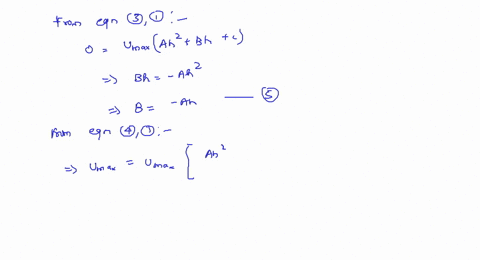 From eqn ③,① :-
0 = Umax(Ah² + Bh + c)
=> Bh = -Ah²
=> B = -Ah —— ⑤
From eqn ④,① :-
=> Umax = Umax [ Ah²